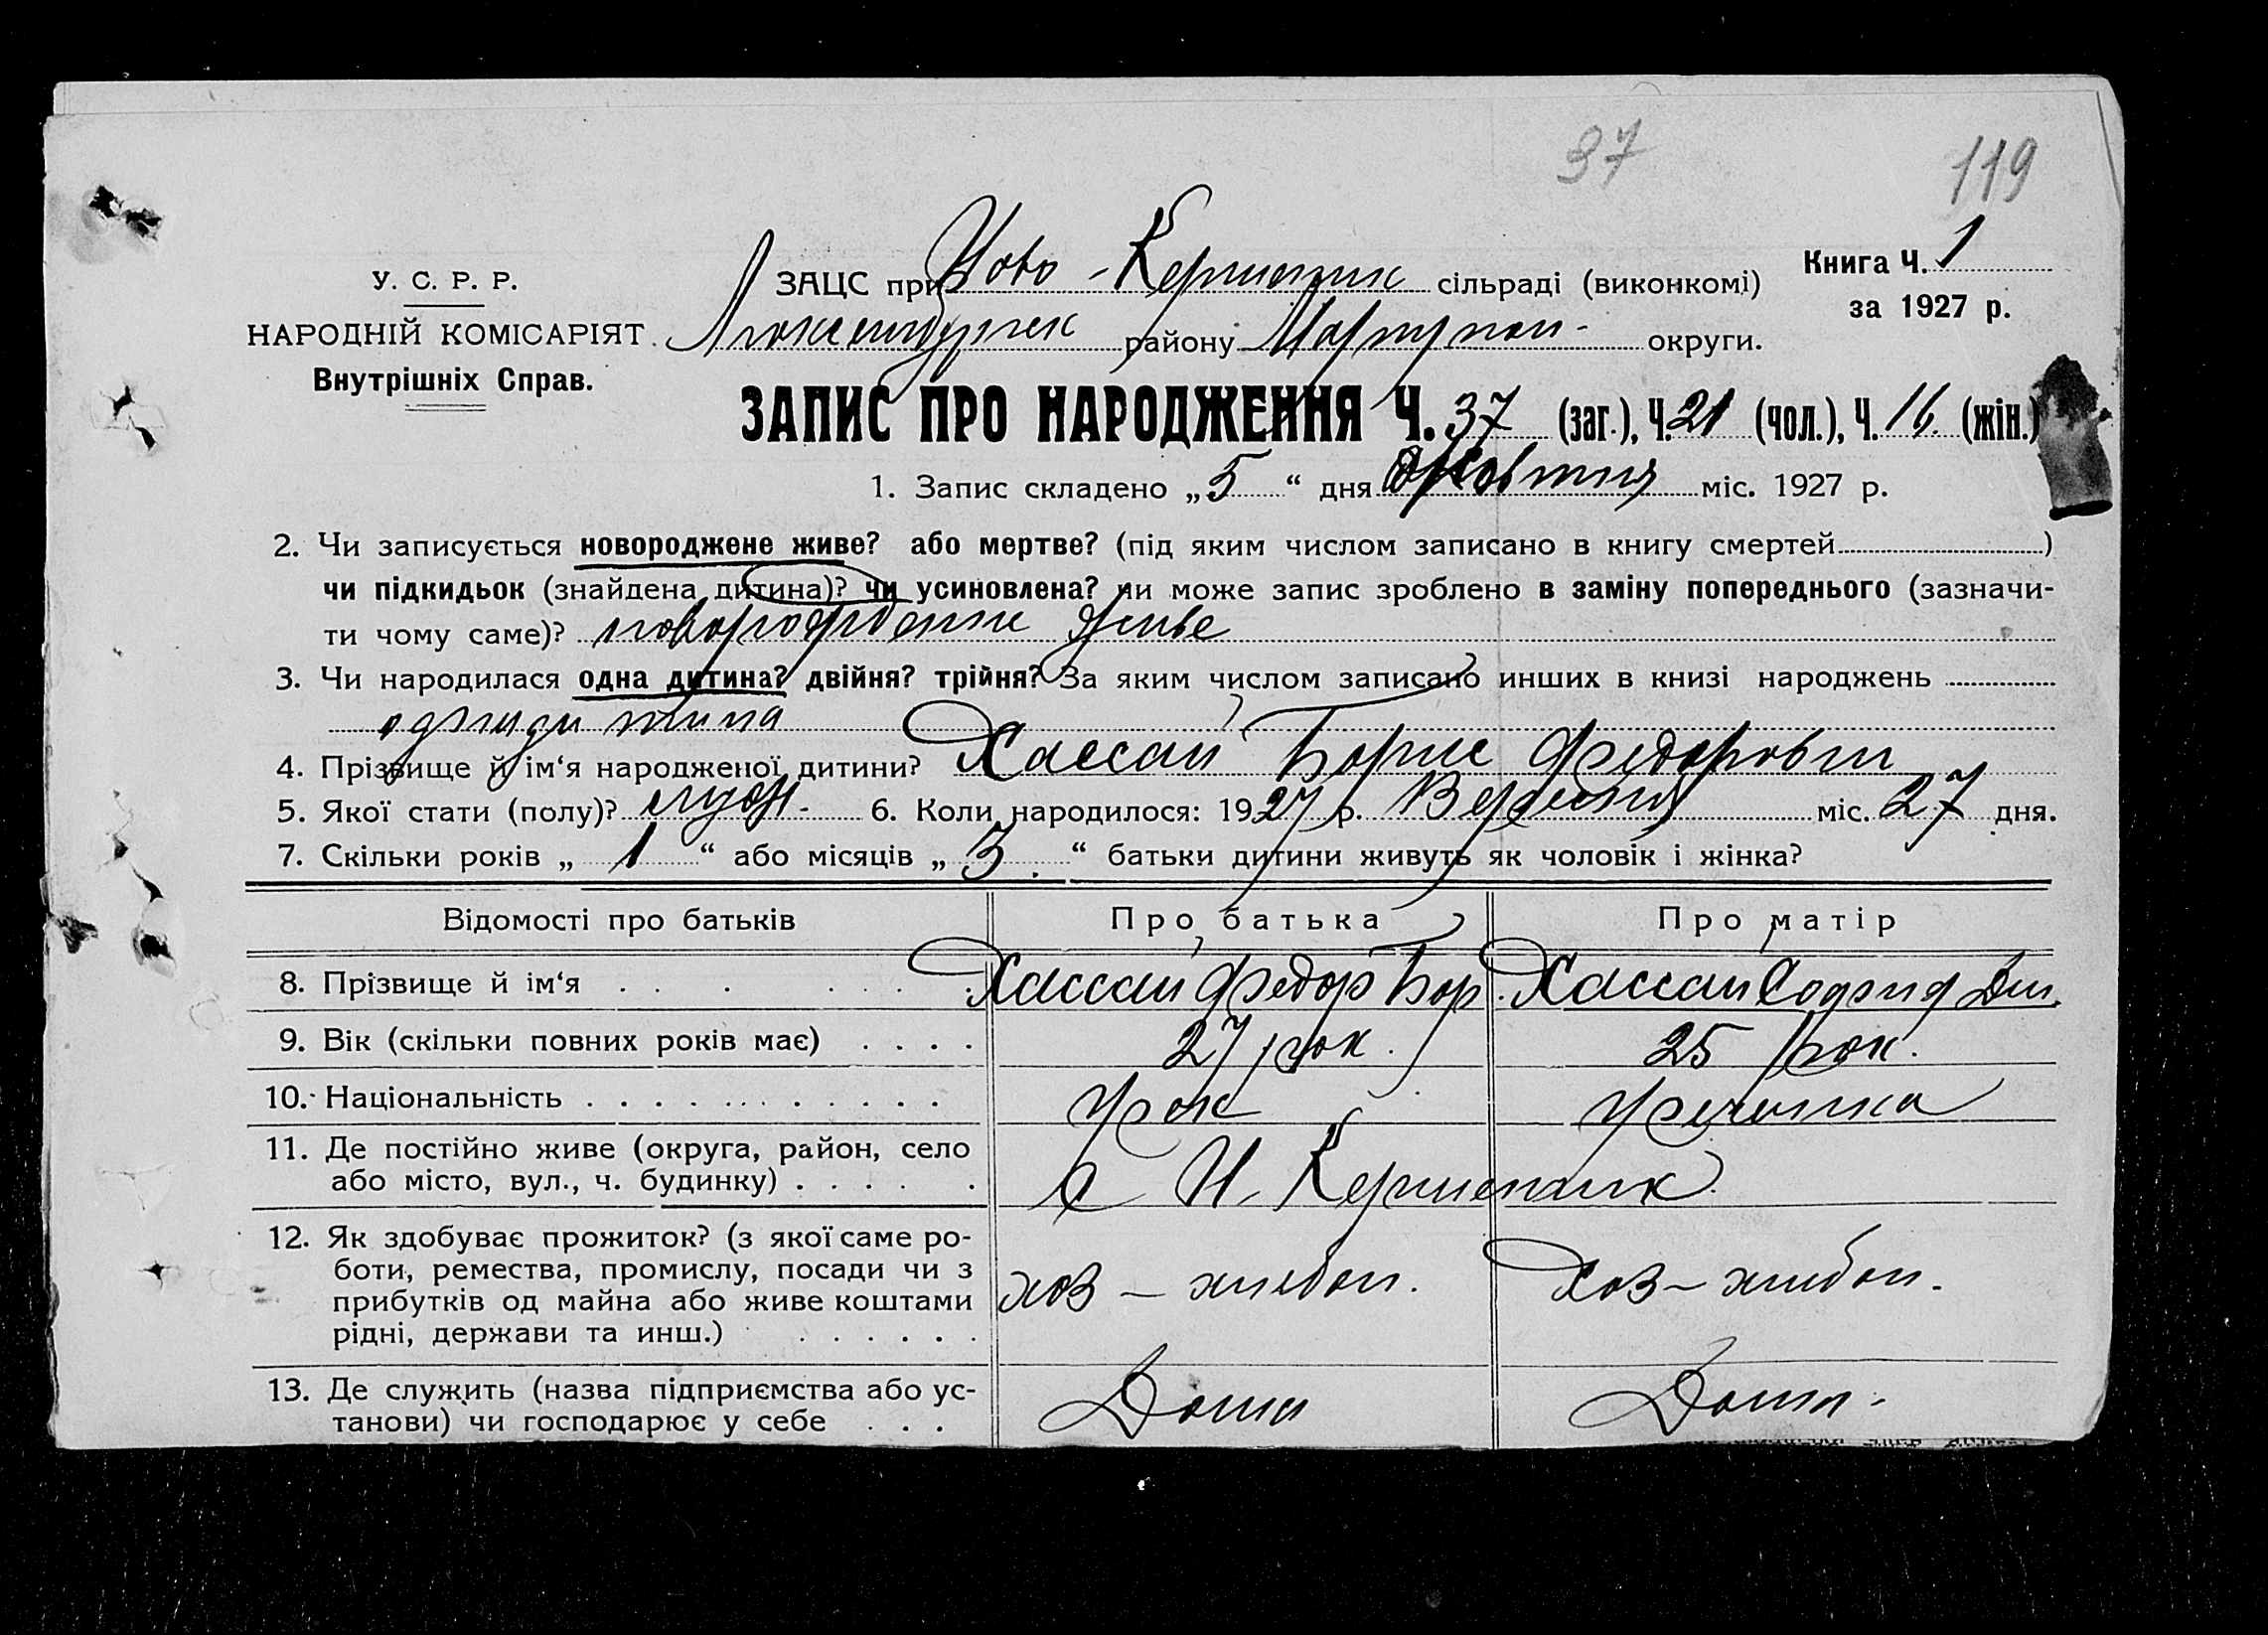 37
119
У. С. Р. Р.
НАРОДНІЙ КОМІСАРІЯТ
Внутрішніх Справ.
ЗАЦС при Ново-Керменчик сільраді (виконкомі)
Люксембургск району Маріупол- округи.
Книга Ч. 1
за 1927 р.
ЗАПИС ПРО НАРОДЖЕННЯ Ч. 37 (заг.), Ч. 21 (чол.), Ч. 16 (жін.)
1. Запис складено „5“ дня Жовтня міс. 1927 р.
2. Чи записується новороджене живе? або мертве? (під яким числом записано в книгу смертей)
чи підкидьок (знайдена дитина)? чи усиновлена? чи може запис зроблено в заміну попереднього (зазначи-
ти чому саме)? живе
3. Чи народилася одна дитина? двійня? трійня? За яким числом записано инших в книзі народжень
одна дитина
4. Прізвище й ім‘я народженої дитини? Хассай Борис Федорович
5. Якої стати (полу)? муж. 6. Коли народилося: 1927 р. Вересня міс. 27 дня.
7. Скільки років „1“ або місяців „3“ батьки дитини живуть як чоловік і жінка?
Відомості про батьків Про батька Про матір
8. Прізвище й ім‘я . . . . . . Хассай Федор Бор. Хассай
9. Вік (скільки повних років має) . . . . 27 рок. 25 рок.
10. Національність . . . . . . . . . . . . Грек Гречанка
11. Де постійно живе (округа, район, село
або місто, вул., ч. будинку) . . . . . с Н. Керменчик
12. Як здобуває прожиток? (з якої саме ро-
боти, ремества, промислу, посади чи з
прибутків од майна або живе коштами
рідні, держави та инш.) . . . . . . хоз – хлібоп. Хоз – хлібоп.
13. Де служить (назва підприємства або ус-
танови) чи господарює у себе . . . Дома Дома